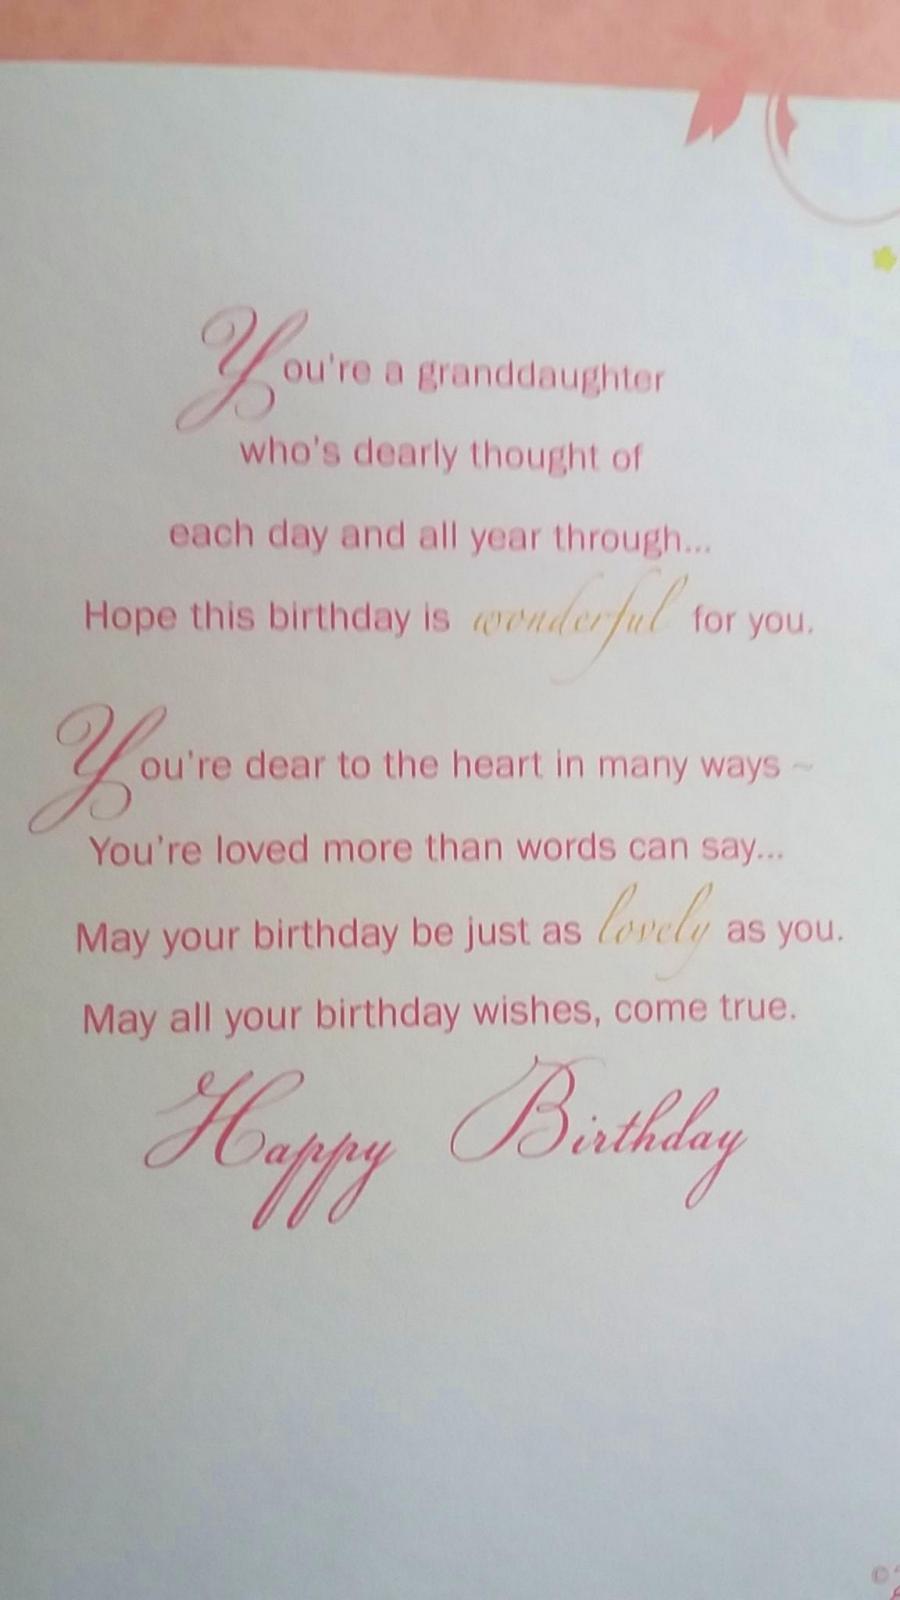 You're a granddaughter
who's dearly thought of
each day and all year through...
Hope this birthday is wonderful for you.
You're dear to the heart in many ways ~
You're loved more than words can say...
May your birthday be just as lovely as you.
May all your birthday wishes, come true.
Happy Birthday
©